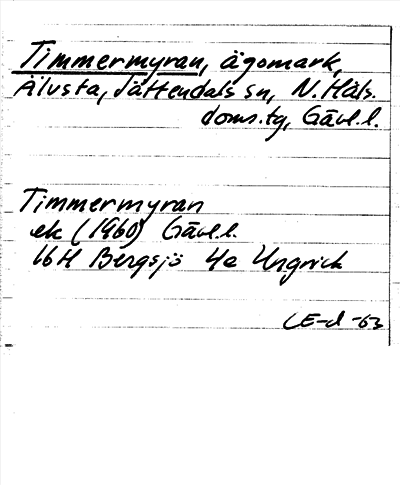 Timmermyran, ägomark,
Älvsta, Jättendals sn, N. Häls.
doms.tg, Gävl.l.
Timmermyran
ek (1960) Gävl.l.
16H Bergsjö 4e Ungrick
LE-d -63